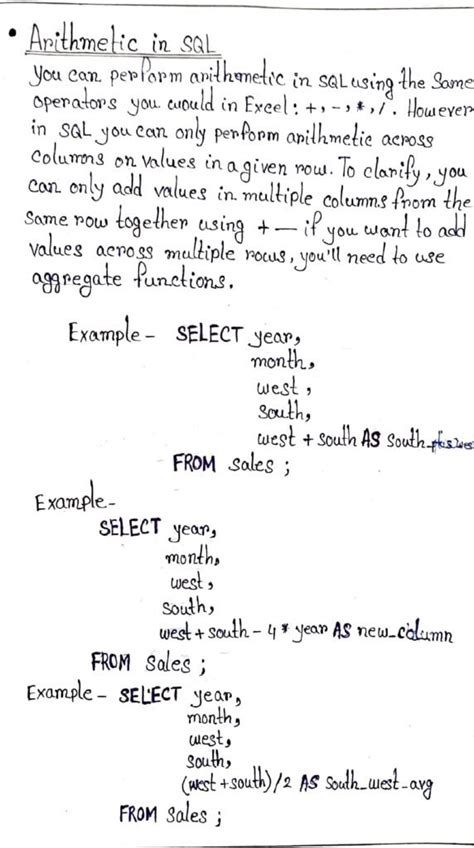 • Arithmetic in SQL
You can perform arithmetic in SQL using the same
operators you would in Excel: +, -, *, /. However
in SQL you can only perform arithmetic across
columns on values in a given row. To clarify, you
can only add values in multiple columns from the
same row together using + — if you want to add
values across multiple rows, you'll need to use
aggregate functions.
Example - SELECT year,
month,
west,
south,
west + south AS South_plus_wes
FROM sales ;
Example-
SELECT year,
month,
west,
south,
west + south - 4 * year AS new_column
FROM Sales ;
Example - SELECT year,
month,
west,
south,
(west + south)/2 AS South_west_avg
FROM Sales ;